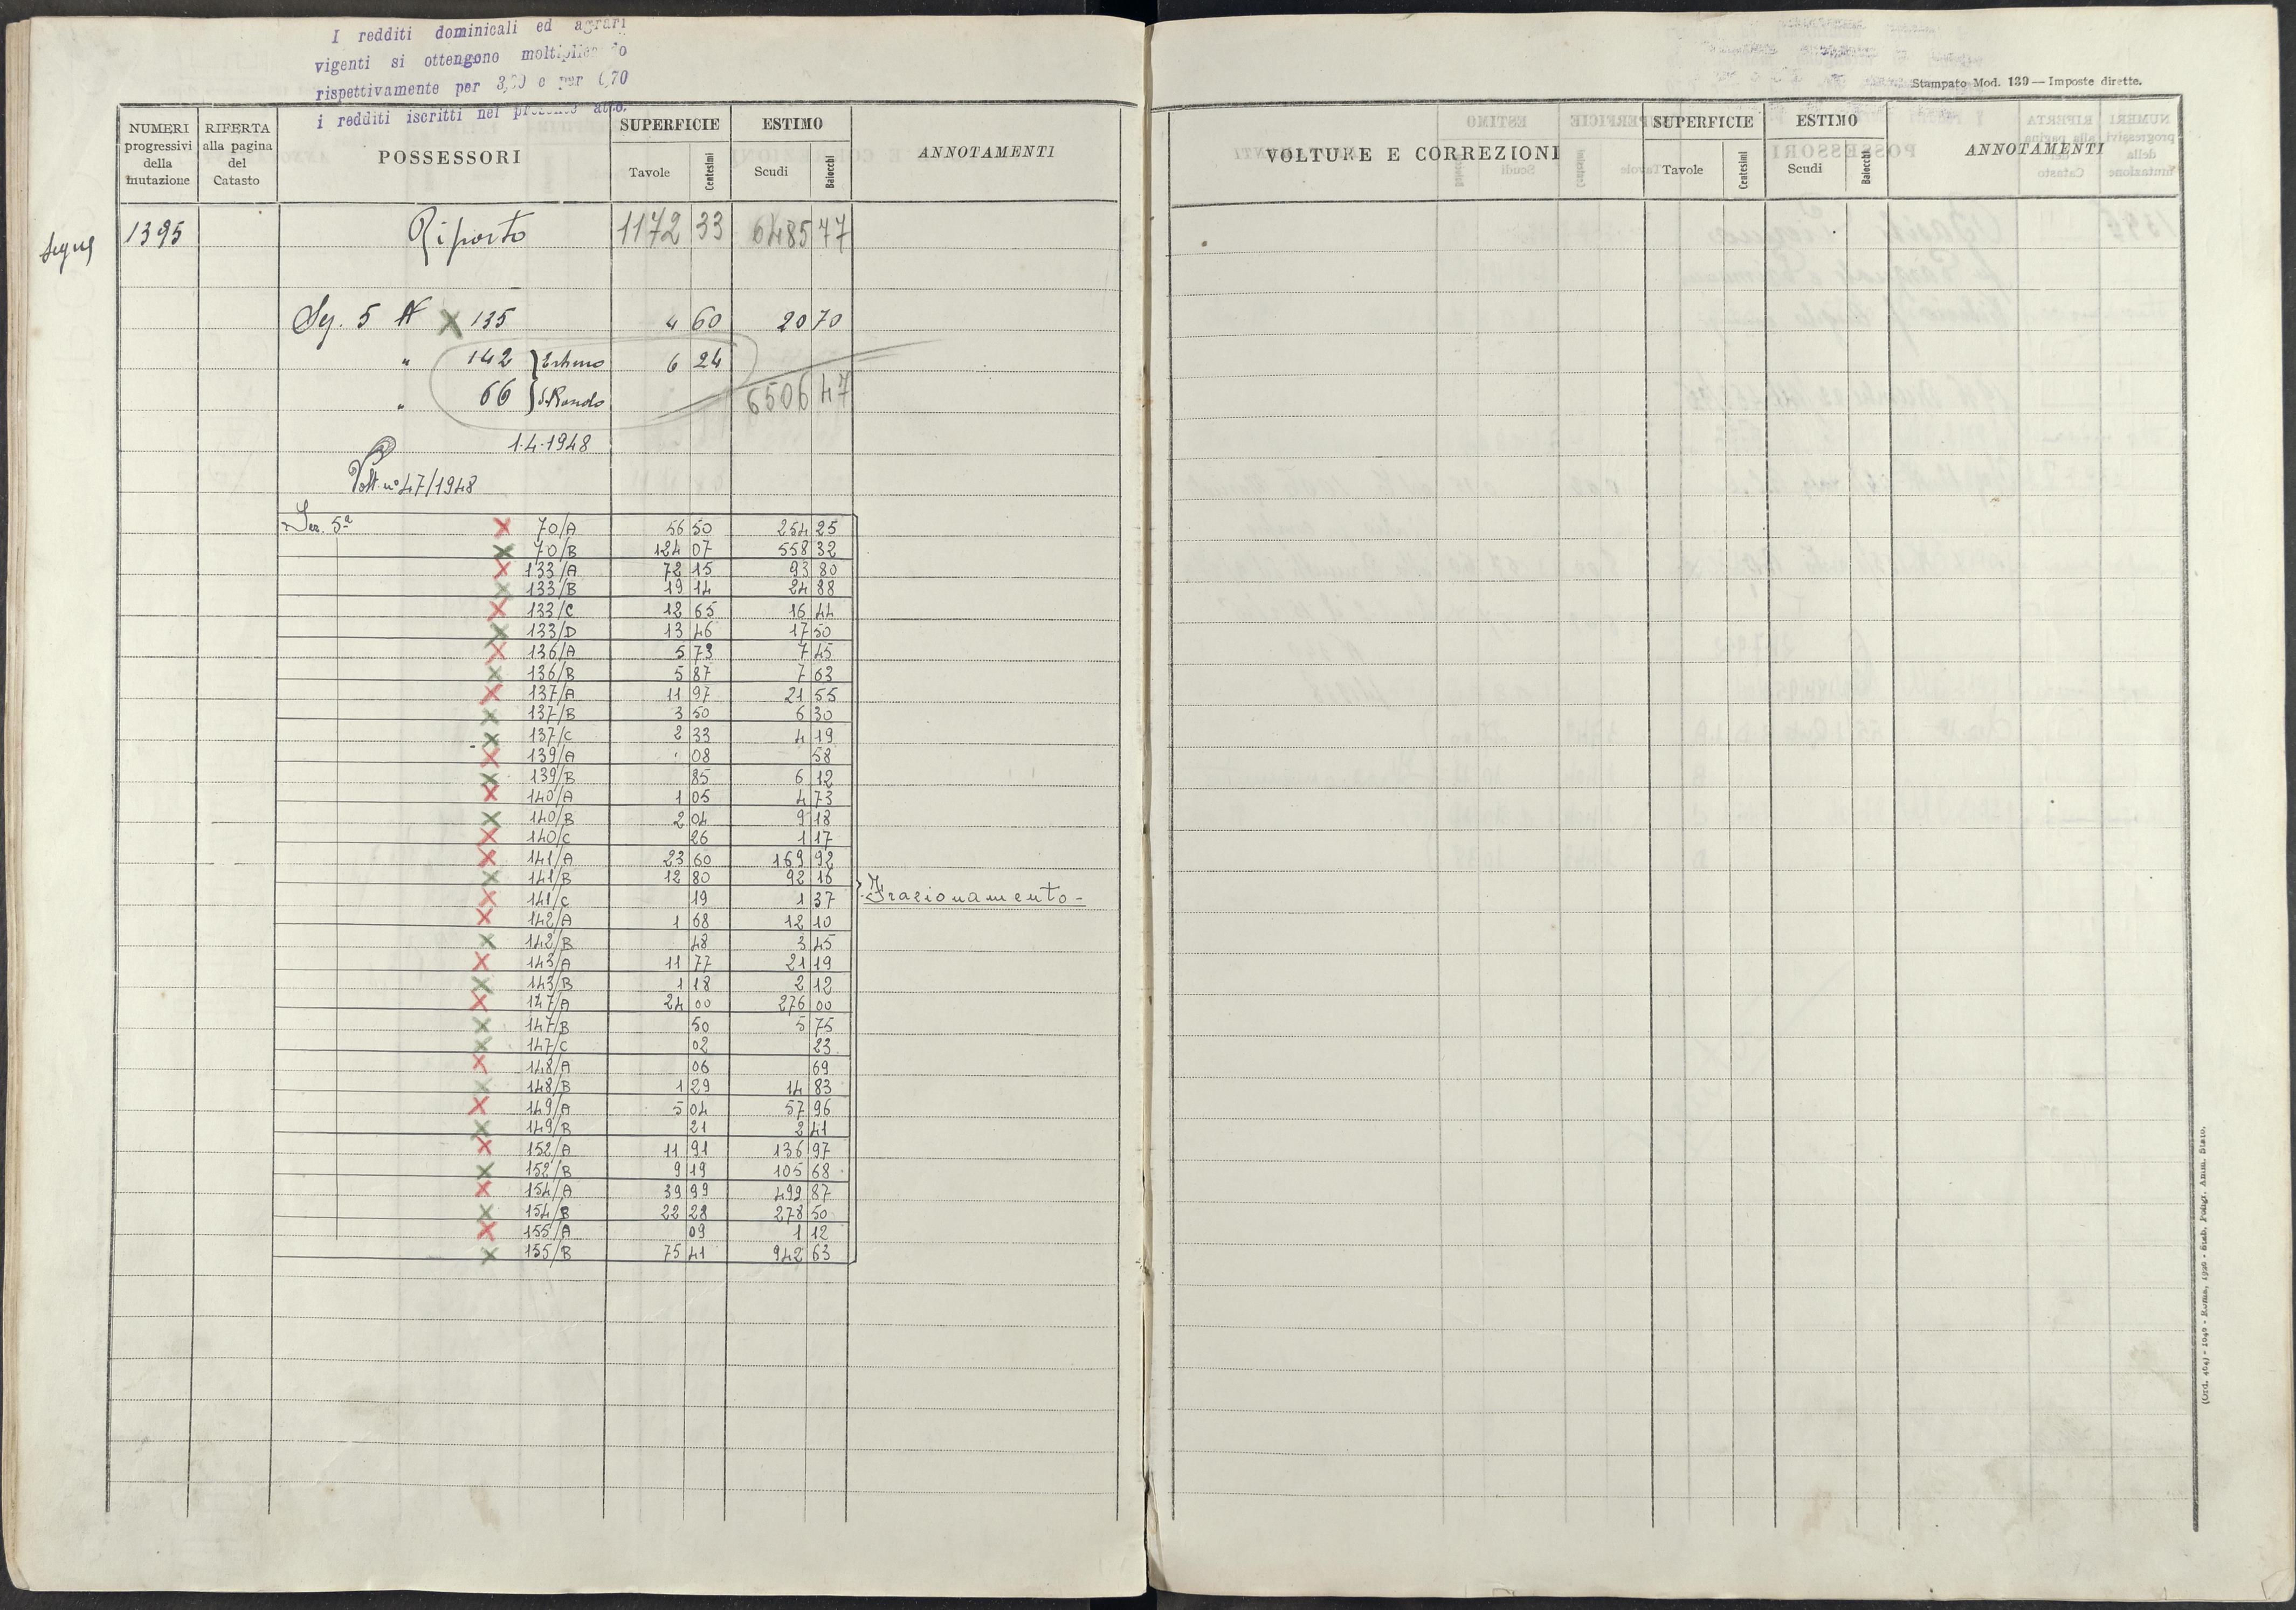 I redditi dominicali ed agrari
vigenti si ottengono
rispettivamente per
i redditi iscritti nel presente atto.
NUMERI progressivi della mutazione
RIFERTA alla pagina del Catasto
POSSESSORI
SUPERFICIE
Tavole Centesimi
ESTIMO
Scudi Baiocchi
ANNOTAMENTI
segue 1395 Riporto 1172 33 6485 77
Sez. 5 N 135 4 60 20 70
" 142 6 24
" 66 6506 47
1.4.1948
Volt. n° 47/1948
Sez. 5ª 70/A 56 50 254 25
70/B 124 07 558 32
133/A 72 15 93 80
133/B 19 14 24 88
133/C 12 65 16 44
133/D 13 46 17 50
136/A 5 73 7 45
136/B 5 87 7 63
137/A 11 97 21 55
137/B 3 50 6 30
137/C 2 33 4 19
139/A 08 58
139/B 85 6 12
140/A 1 05 4 73
140/B 2 04 9 18
140/C 26 1 17
141/A 23 60 169 92
141/B 12 80 92 16
141/C 19 1 37 Frazionamento-
142/A 1 68 12 10
142/B 48 3 45
143/A 11 77 21 19
143/B 1 18 2 12
147/A 24 00 276 00
147/B 50 5 75
147/C 02 23
148/A 06 69
148/B 1 29 14 83
149/A 5 04 57 96
149/B 21 2 41
152/A 11 91 136 97
152/B 9 19 105 68
154/A 39 99 499 87
154/B 22 28 278 50
155/A 09 1 12
155/B 75 41 942 63
Stampato Mod. 139 — Imposte dirette.
VOLTURE E CORREZIONI
SUPERFICIE
Tavole Centesimi
ESTIMO
Scudi Baiocchi
ANNOTAMENTI